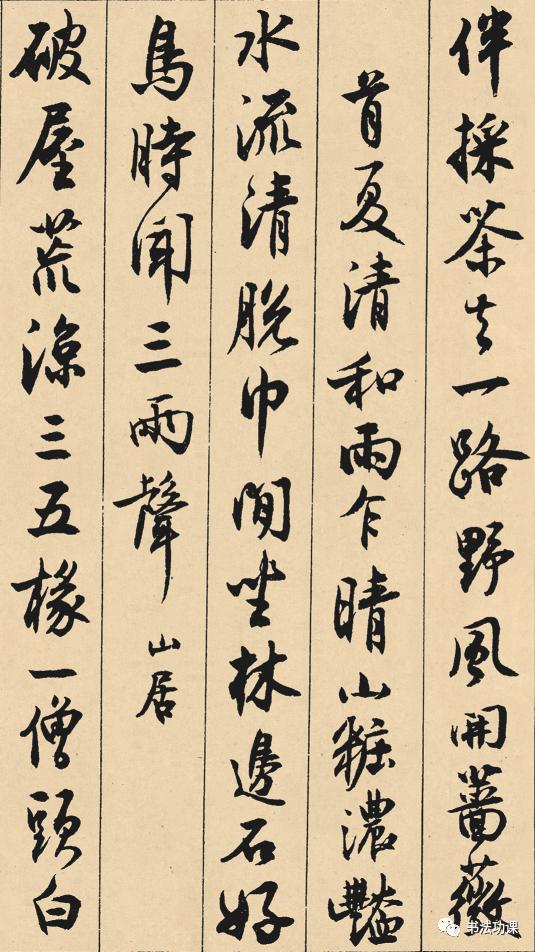 伴採茶去一路野風開薔薇
首夏清和雨乍晴山粧濃豔
水流清脫巾閒坐林邊石好
鳥時聞三兩聲 山居
破屋荒涼三五椽一僧頭白
书法功课